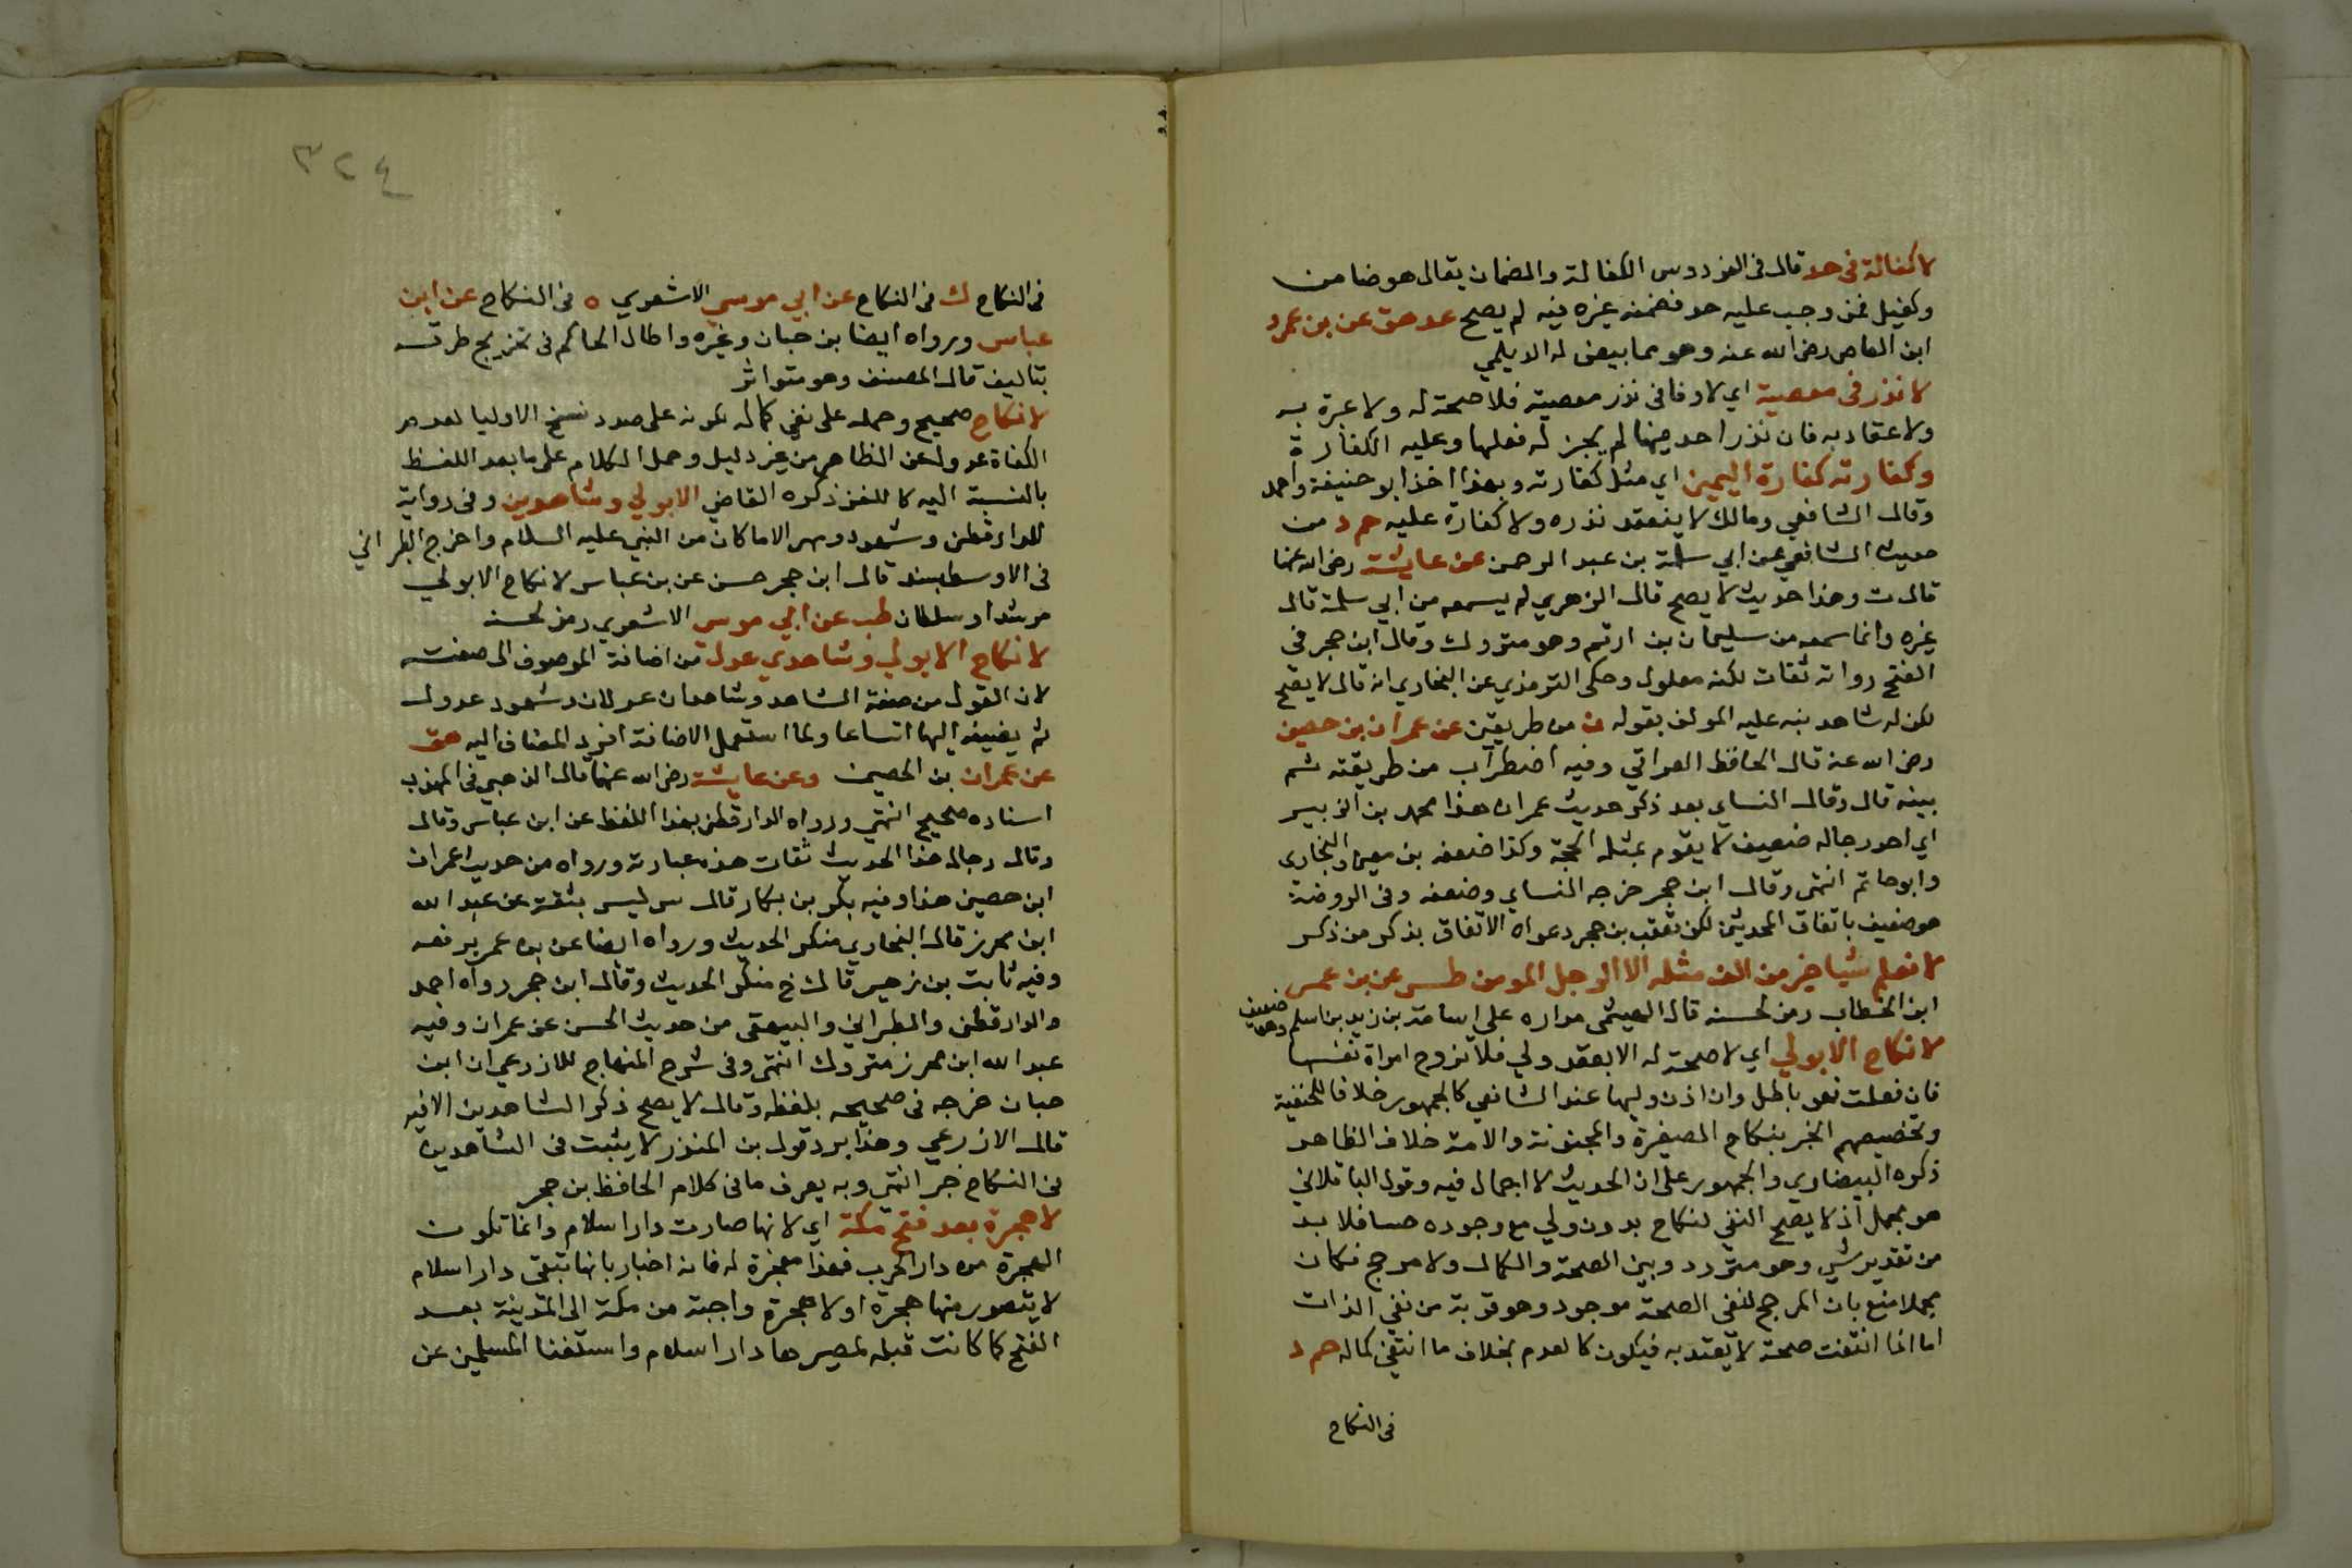 لا كفالة في حد قال في الفردوس الكفالة والضمان يقال هو ضامن
وكفيل فمن وجب عليه حد فضمنه غيره فيه لم يصح عد هق عن بن عمرو
ابن العاص رضي الله عنه وهو مما بيض له الديلمي
لا نذر في معصية اي لا وفا في نذر معصية فلا صحة له ولا عبرة به
ولا عقاد به فان نذر احد منها لم يجز له فعلها وعليه الكفارة
وكفارته كفارة اليمين اي مثل كفارته وبهذا اخذ ابو حنيفة واحمد
وقال الشافعي ومالك لا ينعقد نذره ولا كفارة عليه حم د من
حديث الشافعي عن ابي سلمة بن عبد الرحمن عن عايشة رضي الله عنها
قال ت وهذا حديث لا يصح قال الزهري لم يسمعه من ابي سلمة قال
غيره وانما سمعه من سليمان بن ارقم وهو متروك وقال ابن حجر في
الفتح رواته ثقات لكنه معلول وحكى الترمذي عن البخاري انه قال لا يصح
لكن له شاهد نبه عليه المولف بقوله ن من طريقين عن عمران بن حصين
رضي الله عنه قال الحافظ العراقي وفيه اضطراب من طريقته ثم
بينه قال وقال النساي بعد ذكر حديث عمران هذا محمد بن الزبير
اي احد رجاله ضعيف لا يقوم بمثله الحجة وكذا ضعفه بن معين والبخاري
وابو حاتم انتهى وقال ابن حجر خرجه النساي وضعفه وفي الروضة
هو ضعيف باتفاق المحدثين لكن تعقب بن حجر دعواه الاتفاق بذكر من ذكر
لا نعلم شيا خير من الف مثله الا الرجل المومن طس عن بن عمر
ابن الخطاب رمز لحسنه قال الهيثمي مداره على اسامة بن زيد بن اسلم وهو ضعيف
لا نكاح الا بولي اي لا صحة له الا بعقد ولي فلا تزوج امراة نفسها
فان فعلت فهو باطل وان اذن وليها عند الشافعي كالجمهور خلافا للحنفية
وتخصيصهم الخبر بنكاح الصغيرة والمجنونة والامة خلاف الظاهر
ذكره البيضاوي والجمهور على ان الحديث لا اجمال فيه وقول الباقلاني
هو مجمل اذ لا يصح النفي لنكاح بدون ولي مع وجوده حسا فلا بد
من تقدير شي وهو متردد وبين الصحة والكمال ولا مرجح فكان
مجملا منع بان المرجح لنفي الصحة موجود وهو قربة من نفي الذات
اما انما انتفت صحة لا يعتد به فيكون كالعدم بخلاف ما انتفى كماله حم د
في النكاح
٣٢٤
في النكاح ك في النكاح عن ابي موسى الاشعري ه في النكاح عن ابن
عباس ورواه ايضا بن حبان وغيره واطال الحاكم في تخريج طرقه
بتاليف قال المصنف وهو متواتر
لا نكاح صحيح وحمله على نفي كماله لكونه على صدد فسخ الاوليا لعدم
الكفاة عدول عن الظاهر من غير دليل وحمل الكلام على ما بعد اللفظ
بالنسبة اليه كاللغز ذكره القاضي الا بولي وشاهدين وفي رواية
للدارقطني وشهود ومهر الا ما كان من النبي عليه السلام واخرج الطبراني
في الاوسط بسند قال ابن حجر حسن عن بن عباس لا نكاح الا بولي
مرشد او سلطان طب عن ابي موسى الاشعري رمز لحسنه
لا نكاح الا بولي وشاهدي عدل من اضافة الموصوف الى صفته
لان القول من صفة الشاهد وشاهدان عدلان وشهود عدول
ثم يضيفه اليها اتساعا ولما استعمل الاضافة افرد المضاف اليه هق
عن عمران بن الحصين وعن عايشة رضي الله عنها قال الذهبي في المهذب
اسناده صحيح انتهى ورواه الدارقطني بهذا اللفظ عن ابن عباس وقال
وقال رجال هذا الحديث ثقات هذه عبارته ورواه من حديث عمران
ابن حصين هذا وفيه بكر بن بكار قال س ليس بثقة عن عبد الله
ابن محرز قال البخاري منكر الحديث ورواه ايضا عن بن عمر يرفعه
وفيه ثابت بن زهير قال خ منكر الحديث وقال ابن حجر رواه احمد
والدارقطني والطبراني والبيهقي من حديث الحسن عن عمران وفيه
عبد الله ابن محرز متروك انتهى وفي شرح المنهاج للازرعي ان ابن
حبان خرجه في صحيحه بلفظه وقال لا يصح ذكر الشاهدين الا فيه
قال الازرعي وهذا يرد قول بن المنذر لا يثبت في الشاهدين
في النكاح خبر انتهى وبه يعرف ما في كلام الحافظ بن حجر
لا هجرة بعد فتح مكة اي لانها صارت دار اسلام وانما تكون
الهجرة من دار الحرب فهذا معجزة له فانه اخبار بانها تبقى دار اسلام
لا يتصور منها هجرة او لا هجرة واجبة من مكة الى المدينة بعد
الفتح كما كانت قبله لمصيرها دار اسلام واستغنا المسلمين عن